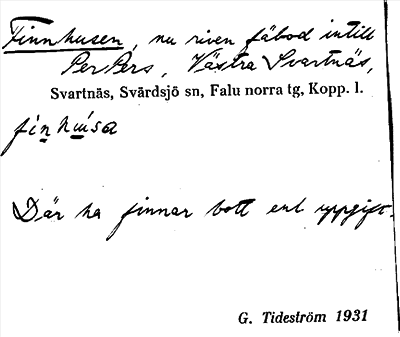 Finnhusen, nu riven fäbod intill
PerPers, Västra Svartnäs,
Svartnäs, Svärdsjö sn, Falu norra tg, Kopp. l.
fìnhúsa
Där ha finnar bott enl uppgift.
G. Tideström 1931